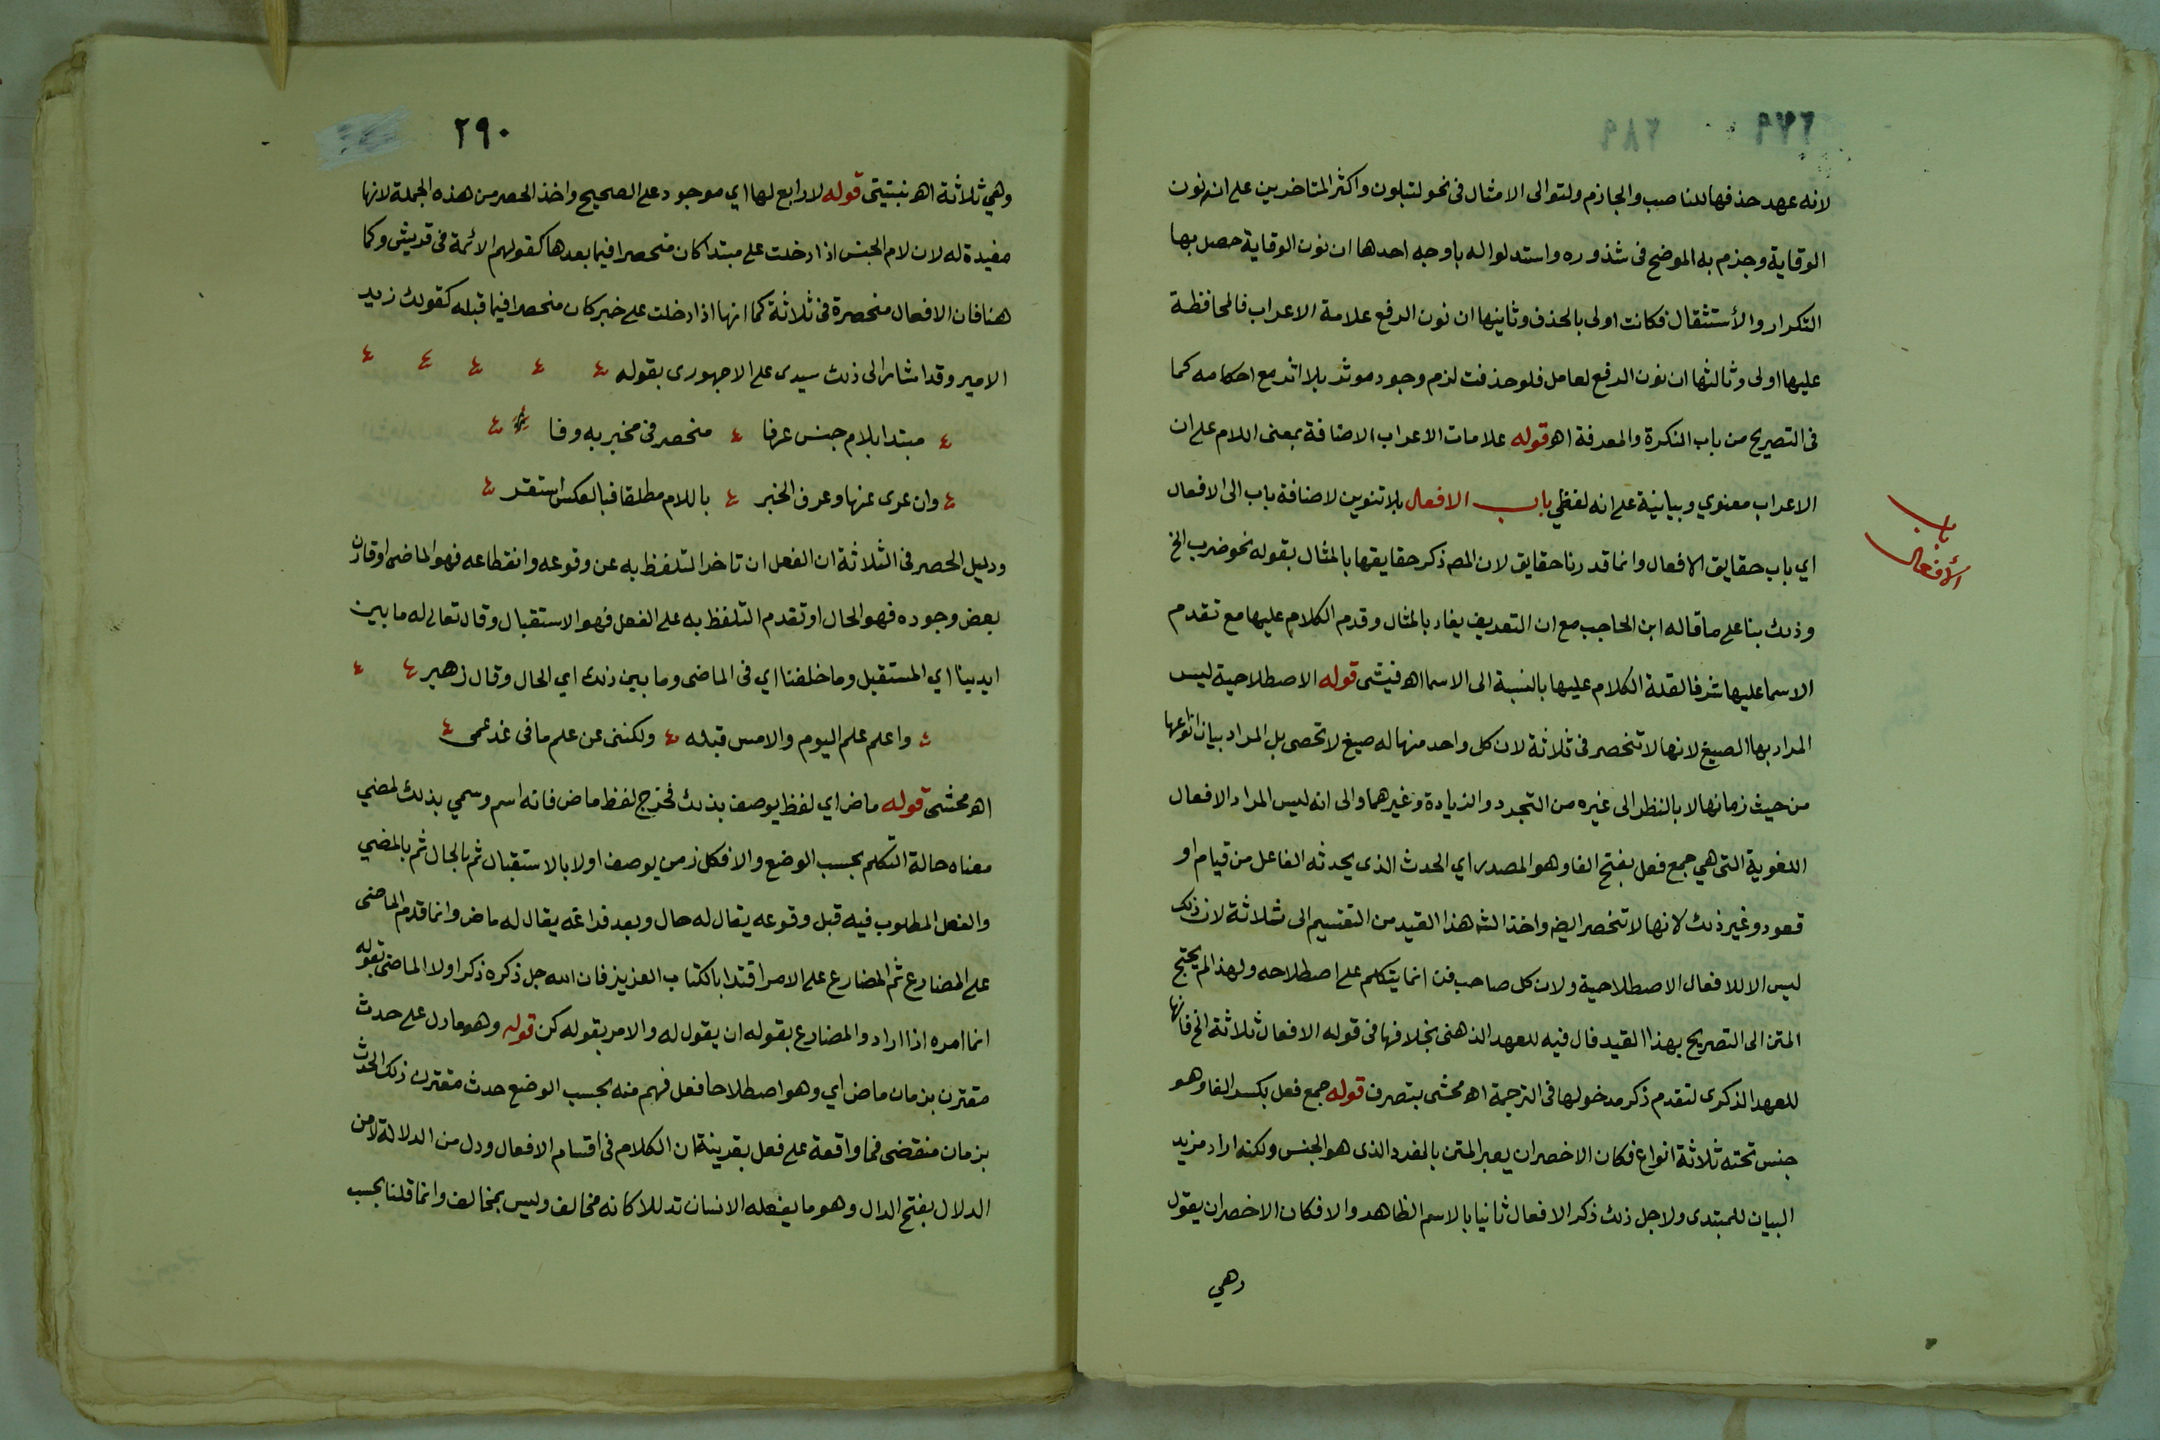 ٢٨٩
لانه عهد حذفها للناصب والجازم ولتوالى الامثال فى نحو لتبلون واكثر المتاخرين على انه نون
الوقاية وجزم به الموضح فى شذوره واستدلوا له باوجه احدها ان نون الوقاية حصل بها
التكرار والأستثقال فكانت اولى بالحذف وثانيها ان نون الرفع علامة الاعراب فالمحافظة
عليها اولى وثالثها ان نون الرفع لعامل فلو حذفت لزم وجود موثر بلا اثر مع احكامه كما
فى التصريح من باب النكرة والمعرفة اهـ قوله علامات الاعراب الاضافة بمعنى اللام على ان
الاعراب معنوي وبيانية على انه لفظي باب الافعال بلا تنوين لاضافة باب الى الافعال
باب
الأفعال
اي باب حقايق الافعال وانما قدرنا حقايق لان المص ذكر حقايقها بالمثال بقوله نحو ضرب الخ
وذلك بنا على ما قاله ابن الحاجب مع ان التعريف يفاد بالمثال وقدم الكلام عليها مع تقدم
الاسما عليها شرفا لقلة الكلام عليها بالنسبة الى الاسما اهـ فيشى قوله الاصطلاحية ليس
المراد بها الصيغ لانها لا تنحصر فى ثلاثة لان كل واحد منها له صيغ لا تحصى بل المراد بيان انواعها
من حيث زمانها لا بالنظر الى غيره من التجرد والزيادة وغيرهما والى انه ليس المراد الافعال
اللغوية التى هي جمع فعل بفتح الفا وهو المصدر اي الحدث الذى يحدثه الفاعل من قيام او
قعود وغير ذلك لانها لا تنحصر ايضا واخذ الشه هذا القيد من التقسيم الى ثلاثة لان ذلك
ليس الا للافعال الاصطلاحية ولان كل صاحب فن انما يتكلم على اصطلاحه ولهذا لم يحتج
المتن الى التصريح بهذا القيد فال فيه للعهد الذهنى بخلافها فى قوله الافعال ثلاثة الخ فانها
للعهد الذكرى لتقدم ذكر مدخولها فى الترجمة اهـ محشى بتصرف قوله جمع فعل بكسر الفا وهو
جنس تحته ثلاثة انواع فكان الاخصر ان يعبر المتن بالمفرد الذى هو الجنس ولكنه اراد مزيد
البيان للمبتدى ولاجل ذلك ذكر الافعال ثانيا بالاسم الظاهر والا فكان الاخصر ان يقول
وهي
٢٩٠
وهي ثلاثة اهـ نبتيتى قوله لا رابع لها اي موجود على الصحيح واخذ الحصر من هذه الجملة لانها
مفيدة له لان لام الجنس اذا دخلت على مبتدا كان منحصرا فيما بعدها كقولهم الائمة فى قريش وكما
هنا فان الافعال منحصرة فى ثلاثة كما انها اذا دخلت على خبر كان منحصرا فيما قبله كقولك زيد
الامير وقد اشار الى ذلك سيدى على الاجهورى بقوله
مبتدا بلام جنس عرفا منحصر فى مخبر به وفا
وان عرى عنها وعرف الخبر باللام مطلقا فبالعكس استقر
ودليل الحصر فى الثلاثة ان الفعل ان تاخر التلفظ به عن وقوعه وانقطاعه فهو الماضى او قارن
بعض وجوده فهو الحال او تقدم التلفظ به على الفعل فهو الاستقبال وقال تعالى له ما بين
ايدينا اي المستقبل وما خلفنا اي فى الماضى وما بين ذلك اي الحال وقال زهير
واعلم علم اليوم والامس قبله ولكننى عن علم ما فى غد عمى
اهـ محشى قوله ماض اي لفظ يوصف بذلك فخرج لفظ ماض فانه اسم وسمي بذلك لمضي
معناه حالة التكلم بحسب الوضع والا فكل زمن يوصف اولا بالاستقبال ثم بالحال ثم بالمضي
والفعل المطلوب فيه قبل وقوعه يقال له حال وبعد فراغه يقال له ماض وانما قدم الماضى
على المضارع ثم المضارع على الامر اقتدا بالكتاب العزيز فان الله جل ذكره ذكر اولا الماضى بقوله
انما امره اذا اراد والمضارع بقوله ان يقول له والامر بقوله كن قوله وهو ما دل على حدث
مقترن بزمان ماض اي وهو اصطلاحا فعل فهم منه بحسب الوضع حدث مقترن ذلك الحدث
بزمان منقضى فما واقعة على فعل بقرينة ان الكلام فى اقسام الافعال ودل من الدلالة لا من
الدلال بفتح الدال وهو ما يفعله الانسان تدللا كانه مخالف وليس بمخالف وانما قلنا بحسب